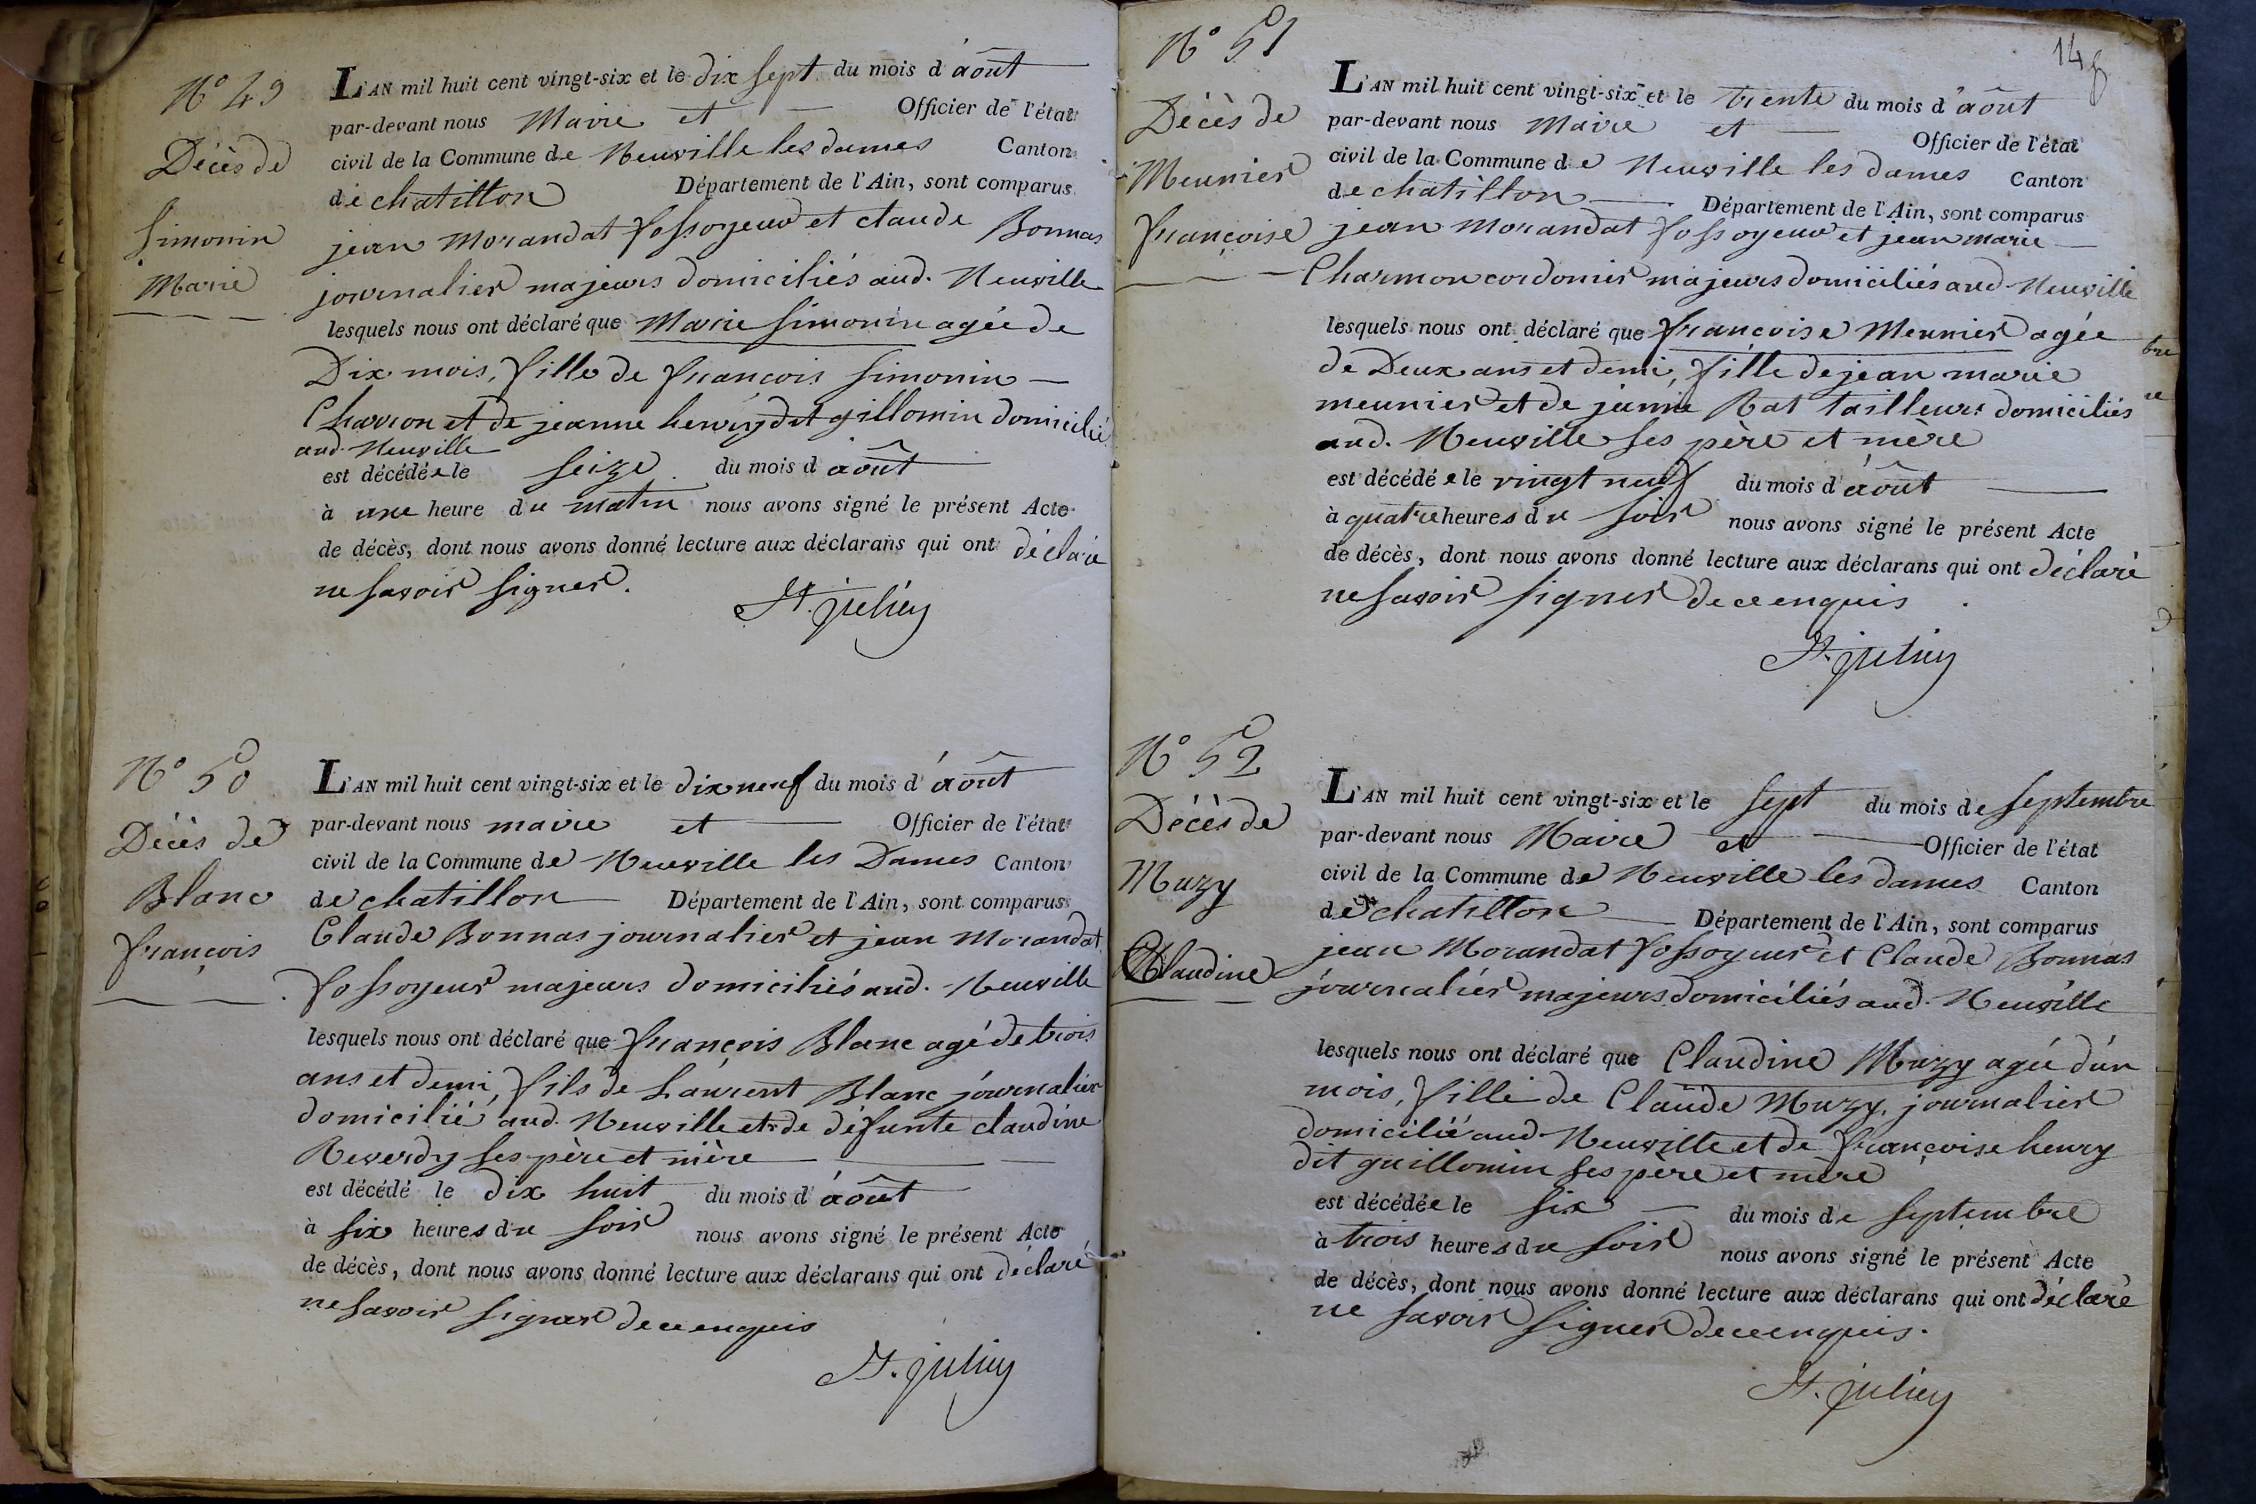 N° 49
Décès de
Simonin
Marie
L'AN mil huit cent vingt-six et le dix sept du mois d'août
par-devant nous Maire et Officier de l'état
civil de la Commune de Neuville les dames Canton
de chatillon Département de l'Ain, sont comparus
jean Morandat fossoyeur et claude Bonnas
journalier majeurs domiciliés aud. Neuville
lesquels nous ont déclaré que Marie Simonin agée de
Dix mois, fille de françois Simonin
Charron et de jeanne henry dit gillomin domicilié
aud Neuville
est décédée le seize du mois d'août
à une heure du matin nous avons signé le présent Acte
de décès, dont nous avons donné lecture aux déclarans qui ont déclaré
ne savoir signer.
St. julien
N° 50
Décès de
Blanc
françois
L'AN mil huit cent vingt-six et le dix neuf du mois d'août
par-devant nous maire et Officier de l'état
civil de la Commune de Neuville les Dames Canton
de chatillon Département de l'Ain, sont comparus
Claude Bonnas journalier et jean Morandat
fossoyeur majeurs domiciliés aud. Neuville
lesquels nous ont déclaré que françois Blanc agé de trois
ans et demi, fils de Laurent Blanc journalier
domicilié aud. Neuville et de défunte claudine
Reverdy ses père et mère
est décédé le dix huit du mois d'août
à six heures du soir nous avons signé le présent Acte
de décès, dont nous avons donné lecture aux déclarans qui ont déclaré
ne savoir signer de ce enquis
St. julien
148
N° 51
Décès de
Meunier
françoise
L'AN mil huit cent vingt-six et le trente du mois d'août
par-devant nous Maire et Officier de l'état
civil de la Commune de Neuville les dames Canton
de chatillon Département de l'Ain, sont comparus
jean Morandat fossoyeur et jean marie
Charmon cordonier majeurs domiciliés aud. Neuville
lesquels nous ont déclaré que françoise Meunier agée
de Deux ans et demi, fille de jean marie
meunier et de jeanne Rat tailleurs domiciliés
aud. Neuville ses père et mère
est décédée le vingt neuf du mois d'août
à quatre heures du soir nous avons signé le présent Acte
de décès, dont nous avons donné lecture aux déclarans qui ont déclaré
ne savoir signer de ce enquis
St. julien
N° 52
Décès de
Muzy
Claudine
L'AN mil huit cent vingt-six et le sept du mois de septembre
par-devant nous Maire et Officier de l'état
civil de la Commune de Neuville les dames Canton
de chatillon Département de l'Ain, sont comparus
jean Morandat fossoyeur et Claude Bonnas
journalier majeurs domiciliés aud. Neuville
lesquels nous ont déclaré que Claudine Muzy agée d'un
mois, fille de Claude Muzy, journalier
domicilié aud Neuville et de françoise henry
dit guillomin ses père et mère
est décédée le six du mois de septembre
à trois heures du soir nous avons signé le présent Acte
de décès, dont nous avons donné lecture aux déclarans qui ont déclaré
ne savoir signer de ce enquis.
St. julien